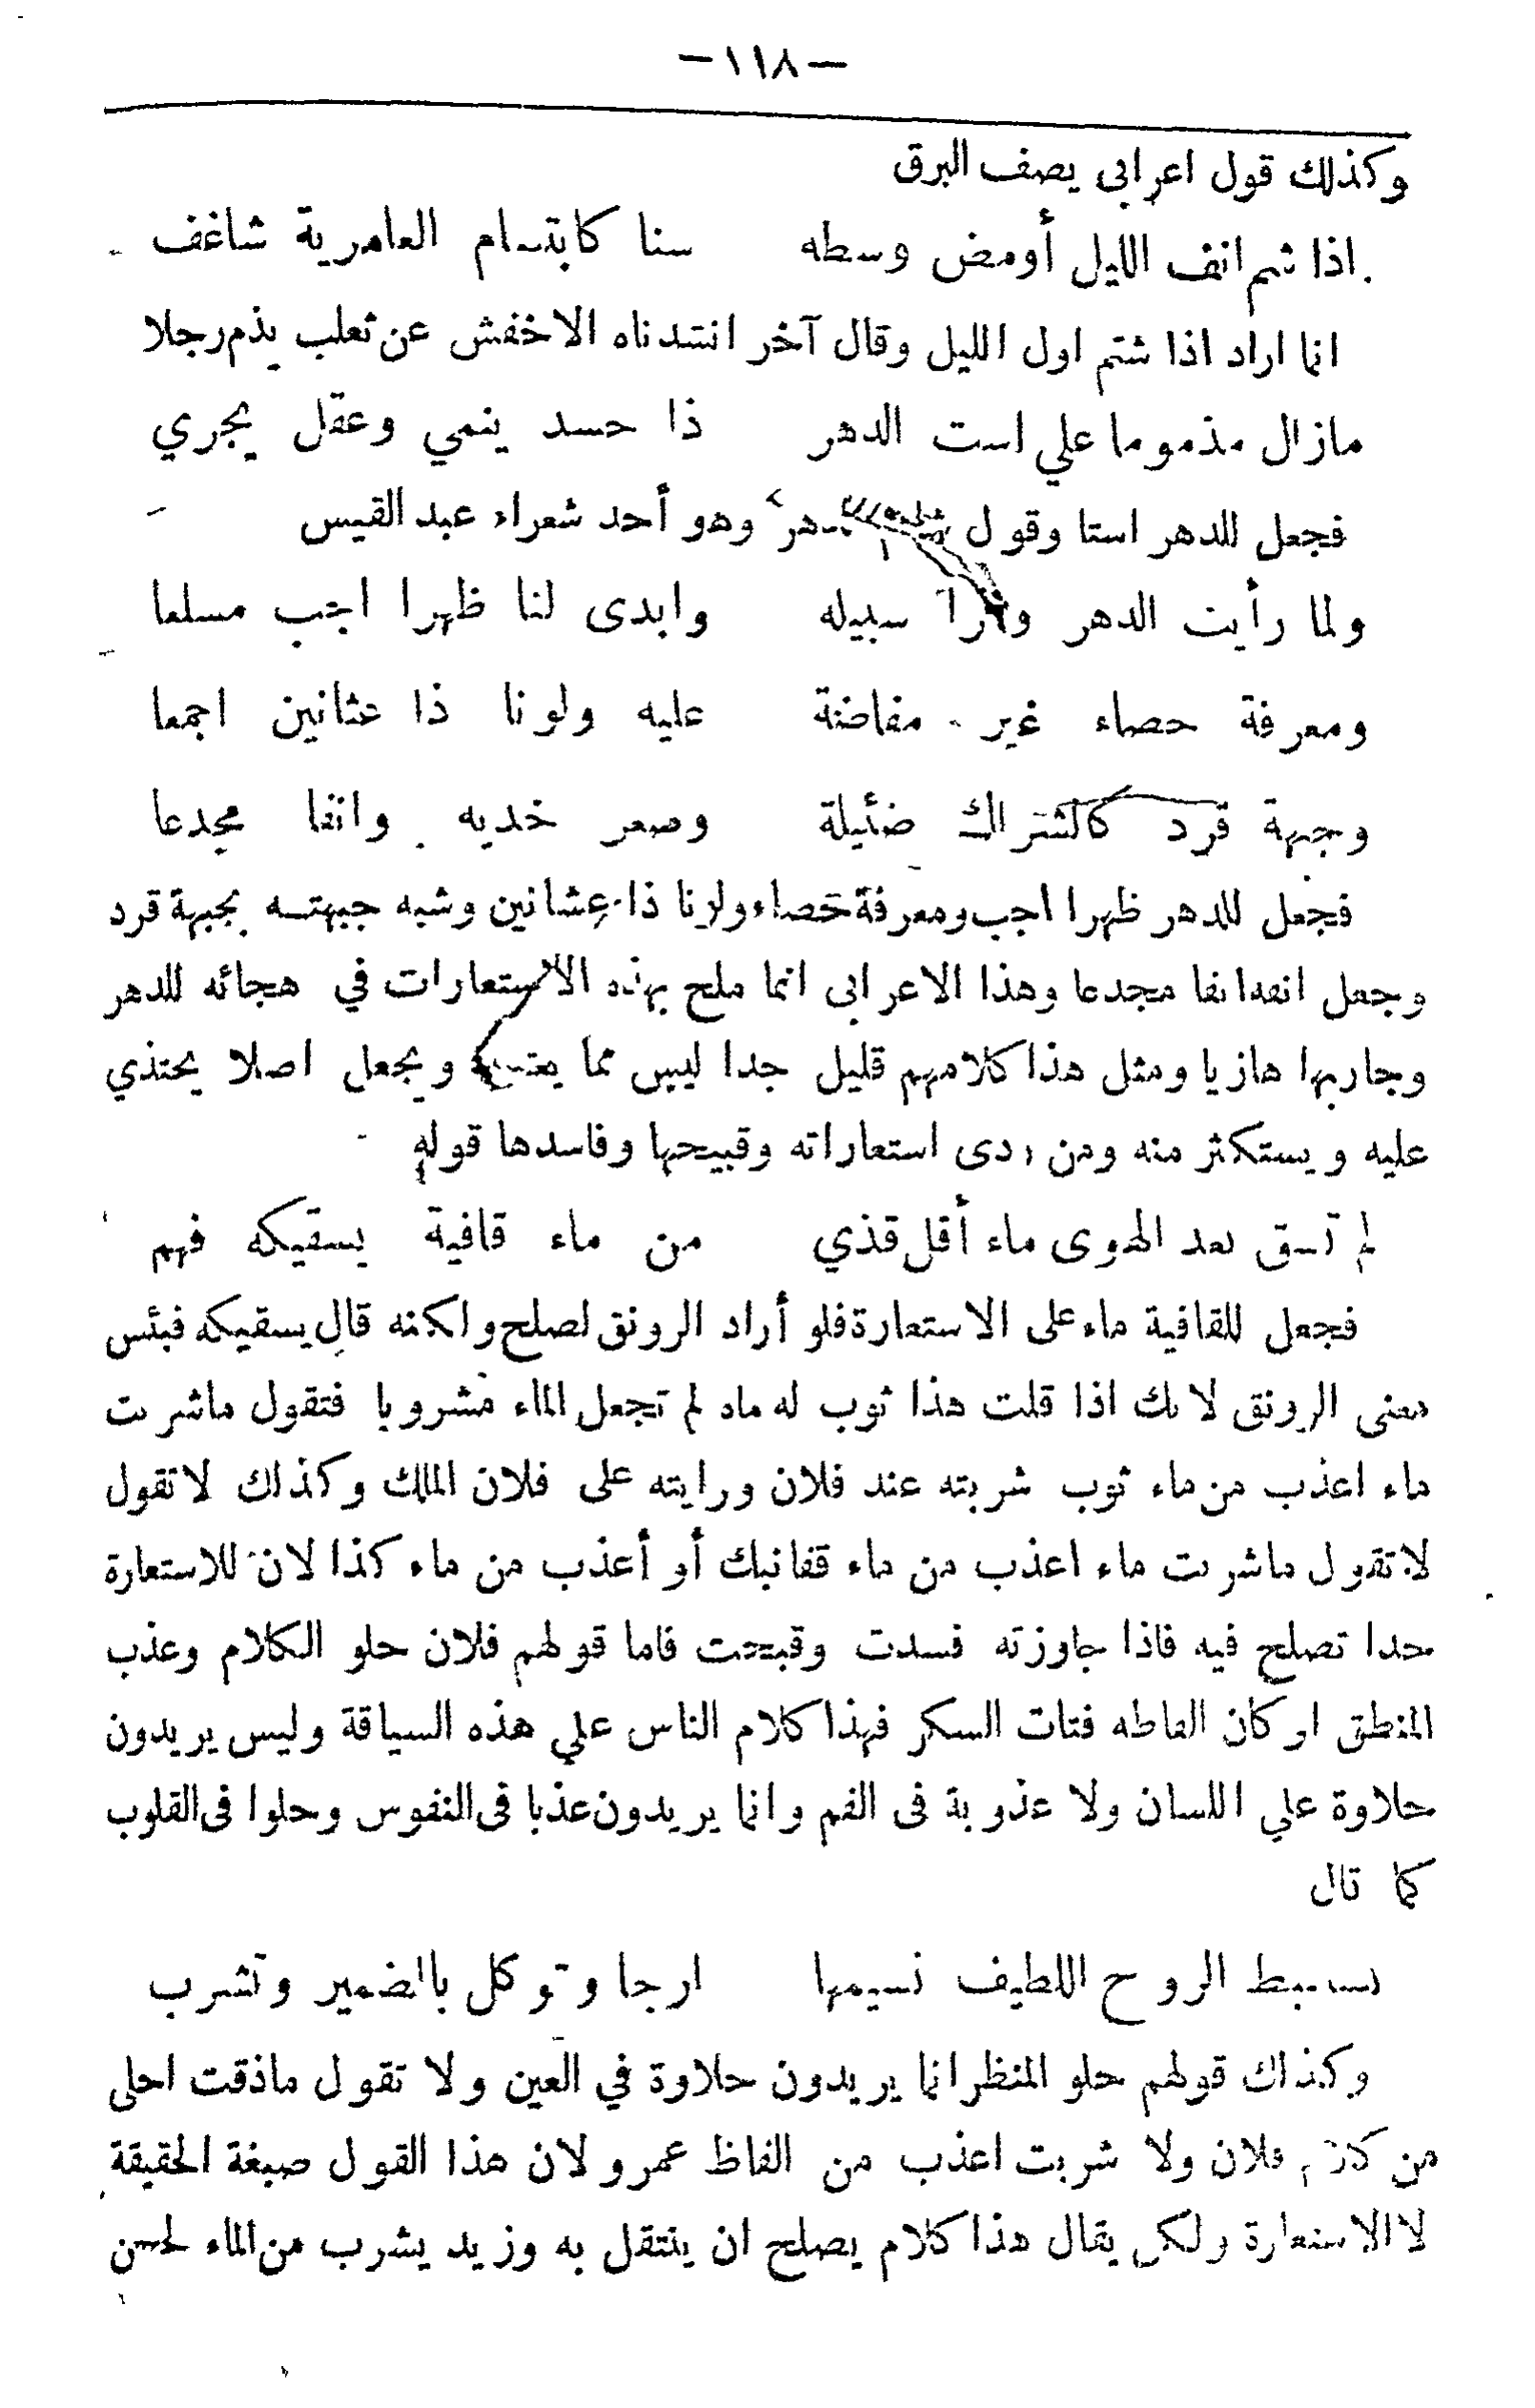 —١١٨—
وكذلك قول اعرابي يصف البرق
اذا شيم انف الليل أومض وسطه سنا كابتسام العامرية شاغف
انما اراد اذا شتم اول الليل وقال آخر انشدناه الاخفش عن ثعلب يذم رجلا
مازال مذموما علي است الدهر ذا حسد ينمي وعقل يجري
فجعل للدهر استا وقول وهو أحد شعراء عبد القيس
ولما رأيت الدهر سبيله وابدى لنا ظهرا اجب مسلعا
ومعرفة حصاء غير مفاضة عليه ولونا ذا عثانين اجمعا
وجبهة قرد كالشراك ضئيلة وصعر خديه وانفا مجدعا
فجعل للدهر ظهرا اجب ومعرفة حصاء ولونا ذا عشانين وشبه جبهته بجبهة قرد
وجعل انفه انفا مجدعا وهذا الاعرابي انما ملح بهذه الاستعارات في هجائه للدهر
وجاء بها هازيا ومثل هذا كلامهم قليل جدا ليس مما ويجعل اصلا يحتذي
عليه ويستكثر منه ومن ردى استعاراته وقبيحها وفاسدها قوله
لم تسق بعد الهوى ماء أقل قذي من ماء قافية يسقيكه فهم
فجعل للقافية ماء على الاستعارة فلو أراد الرونق لصلح ولكنه قال يسقيكه فبئس
معنى الرونق لانك اذا قلت هذا ثوب له ماء لم تجعل الماء مشروبا فتقول ماشربت
ماء اعذب من ماء ثوب شربته عند فلان ورايته على فلان الملك وكذلك لا تقول
لا تقول ماشربت ماء اعذب من ماء قفانبك أو أعذب من ماء كذا لان للاستعارة
حدا تصلح فيه فاذا جاوزته فسدت وقبحت فاما قولهم فلان حلو الكلام وعذب
المنطق او كان الفاظه فتات السكر فهذا كلام الناس علي هذه السياقة وليس يريدون
حلاوة علي اللسان ولا عذوبة فى الفم وانما يريدون عذبا فى النفوس وحلوا فى القلوب
كما قال
الروح اللطيف نسيمها ارجا وتوكل بالضمير وتشرب
وكذلك قولهم حلو المنظر انما يريدون حلاوة في العين ولا تقول ماذقت احلى
من كلام فلان ولا شربت اعذب من الفاظ عمرو لان هذا القول صيغة الحقيقة
لا الاستعارة ولكن يقال هذا كلام يصلح ان ينتقل به وزيد يشرب من الماء لحسن